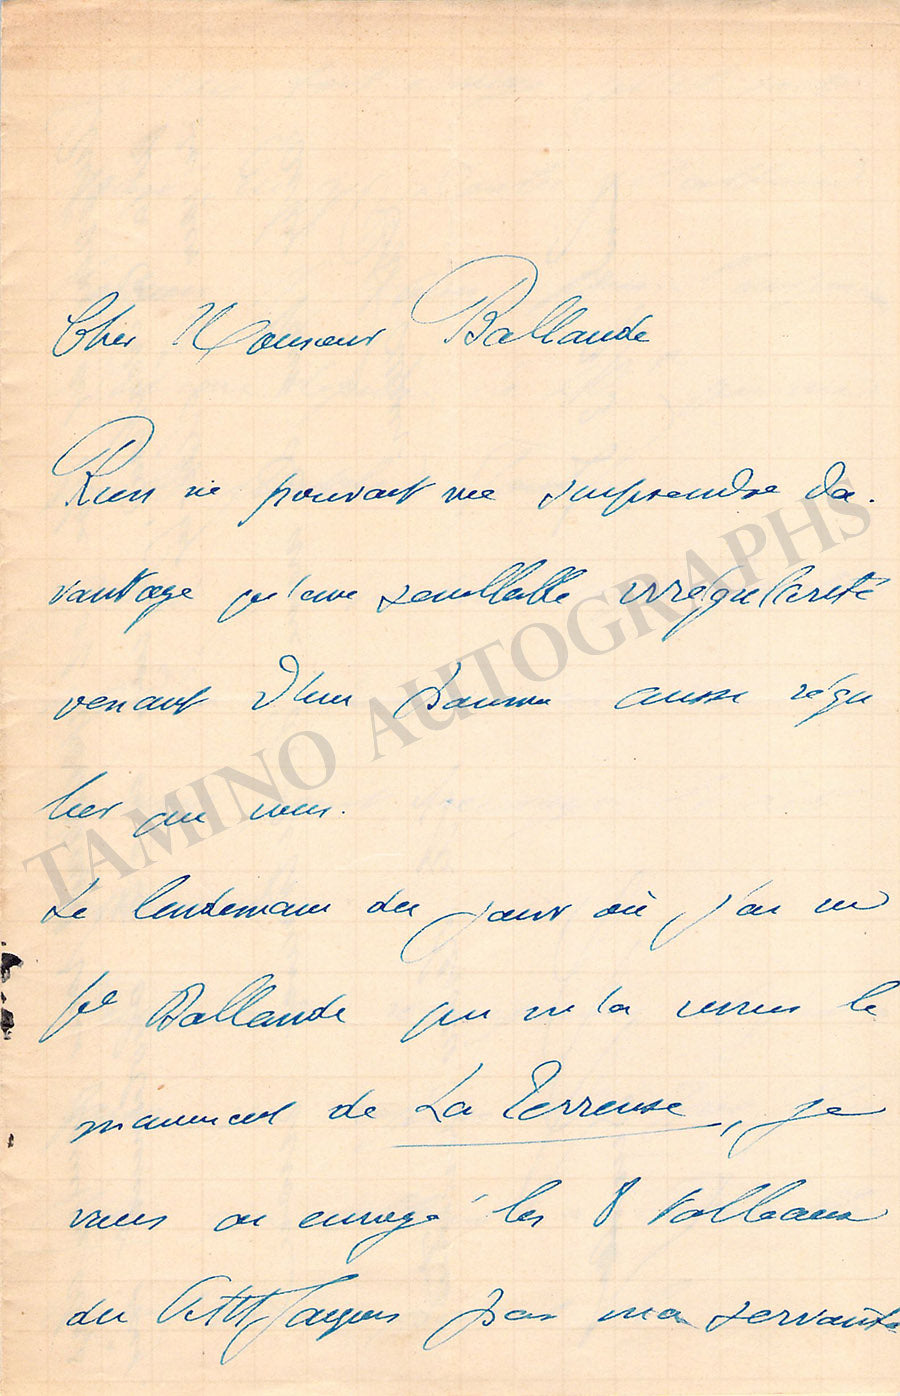 Cher Monsieur Ballande
Rien ne pouvait me surprendre da-
vantage qu'une semblable irrégularité
venant d'un homme aussi régu
lier que vous.
Le lendemain du jour où j'ai vu
Ballande qui m'a remis le
manuscrit de La Terreuse, je
vous ai envoyé les 8 tableaux
du Petit Jacques par ma servante
TAMINO AUTOGRAPHS